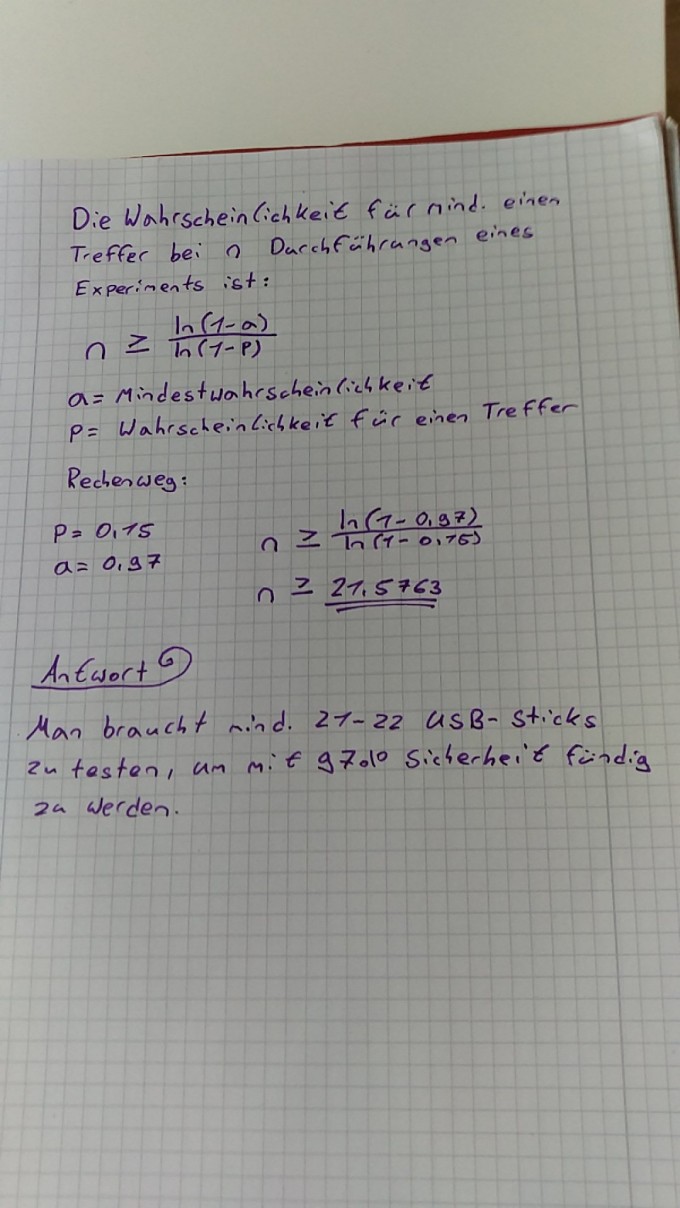 Die Wahrscheinlichkeit für mind. einen
Treffer bei n Durchführungen eines
Experiments ist:
n ≥ ln(1-a) / ln(1-P)
a = Mindestwahrscheinlichkeit
P = Wahrscheinlichkeit für einen Treffer
Rechenweg:
P = 0,15
n ≥ ln(1-0,97) / ln(1-0,15)
a = 0,97
n ≥ 21,5763
Antwort
Man braucht mind. 21-22 USB-Sticks
zu testen, um mit 97% Sicherheit fündig
zu werden.